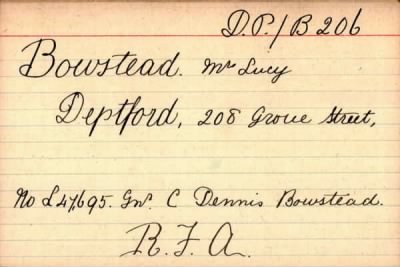 D.P./B 206
Bowstead. Mrs Lucy
Deptford, 208 Grove Street,
No L47,695. Gnr. C Dennis Bowstead.
R.F.A.